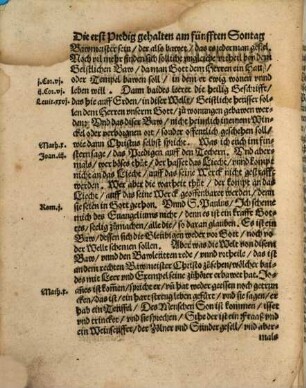 Die erst Predig gehalten am fünfften Sontag
Bawmeister sein / der also bawet / das es jederman gefel.
Noch vil mehr finden sich solliche ungleiche urtheil bey dem
Geistlichen Baw / da man Gott dem Herren ein Hauß /
j.Cor.vj. oder Tempel bawen soll / in dem er ewig wonen unnd
ij.Cor.vj. leben will. Dann baides leeret die heilig Geschrifft /
Levit.xxvj. das hie auff Erden / in diser Welt / Geistliche heuser sol-
len dem Herren unserm Gott / zu wonungen gebawet wer-
den: Unnd das diser Baw / nicht heimlich in einem Win-
ckel oder verborgnen ort / sonder offentlich geschehen soll /
Math.x. wie dann Christus selbst sprach. Was ich euch im fin-
stern sage / das Predigen auff den Techern. Und aber-
Joan.iij. mals / wer böses thut / der hasset das Liecht / unnd kompt
nicht an das Liecht / auff das seine Werck nicht gestrafft
werden. Wer aber die warheit thut / der kompt an das
Liecht / auff das seine Werck geoffenbaret werden / denn
sie seien in Gott gethon. Unnd S. Paulus / Ich scheme
Rom.j. mich des Evangeliums nicht / denn es ist ein krafft Got-
tes / seelig zumachen / alle die / so daran glauben. Es ist ein
Baw / dessen sich die Gleubigen weder vor Gott / noch vor
der Welt schemen sollen. Aber was die Welt von disem
Baw / unnd den Bawleütten rede / unnd urtheile / das ist
an dem rechten Bawmeister Christo zůsehen / wölcher bai-
des mit Leer und Exempel seine zuhörer erbawet hat. Jo-
Math.xj. annes ist kommen / sprichet er / und hat weder geessen noch getrun-
cken / das ist / ein hart streng leben gefürt / und sie sagen / er
hab ein Teüffel. Des Menschen Son ist kommen / isset
und trincket / und sie sprechen / Sihe der ist ein fraaß und
ein Weinsäuffer / der Zölner und Sünder gesell / und aber-
mals